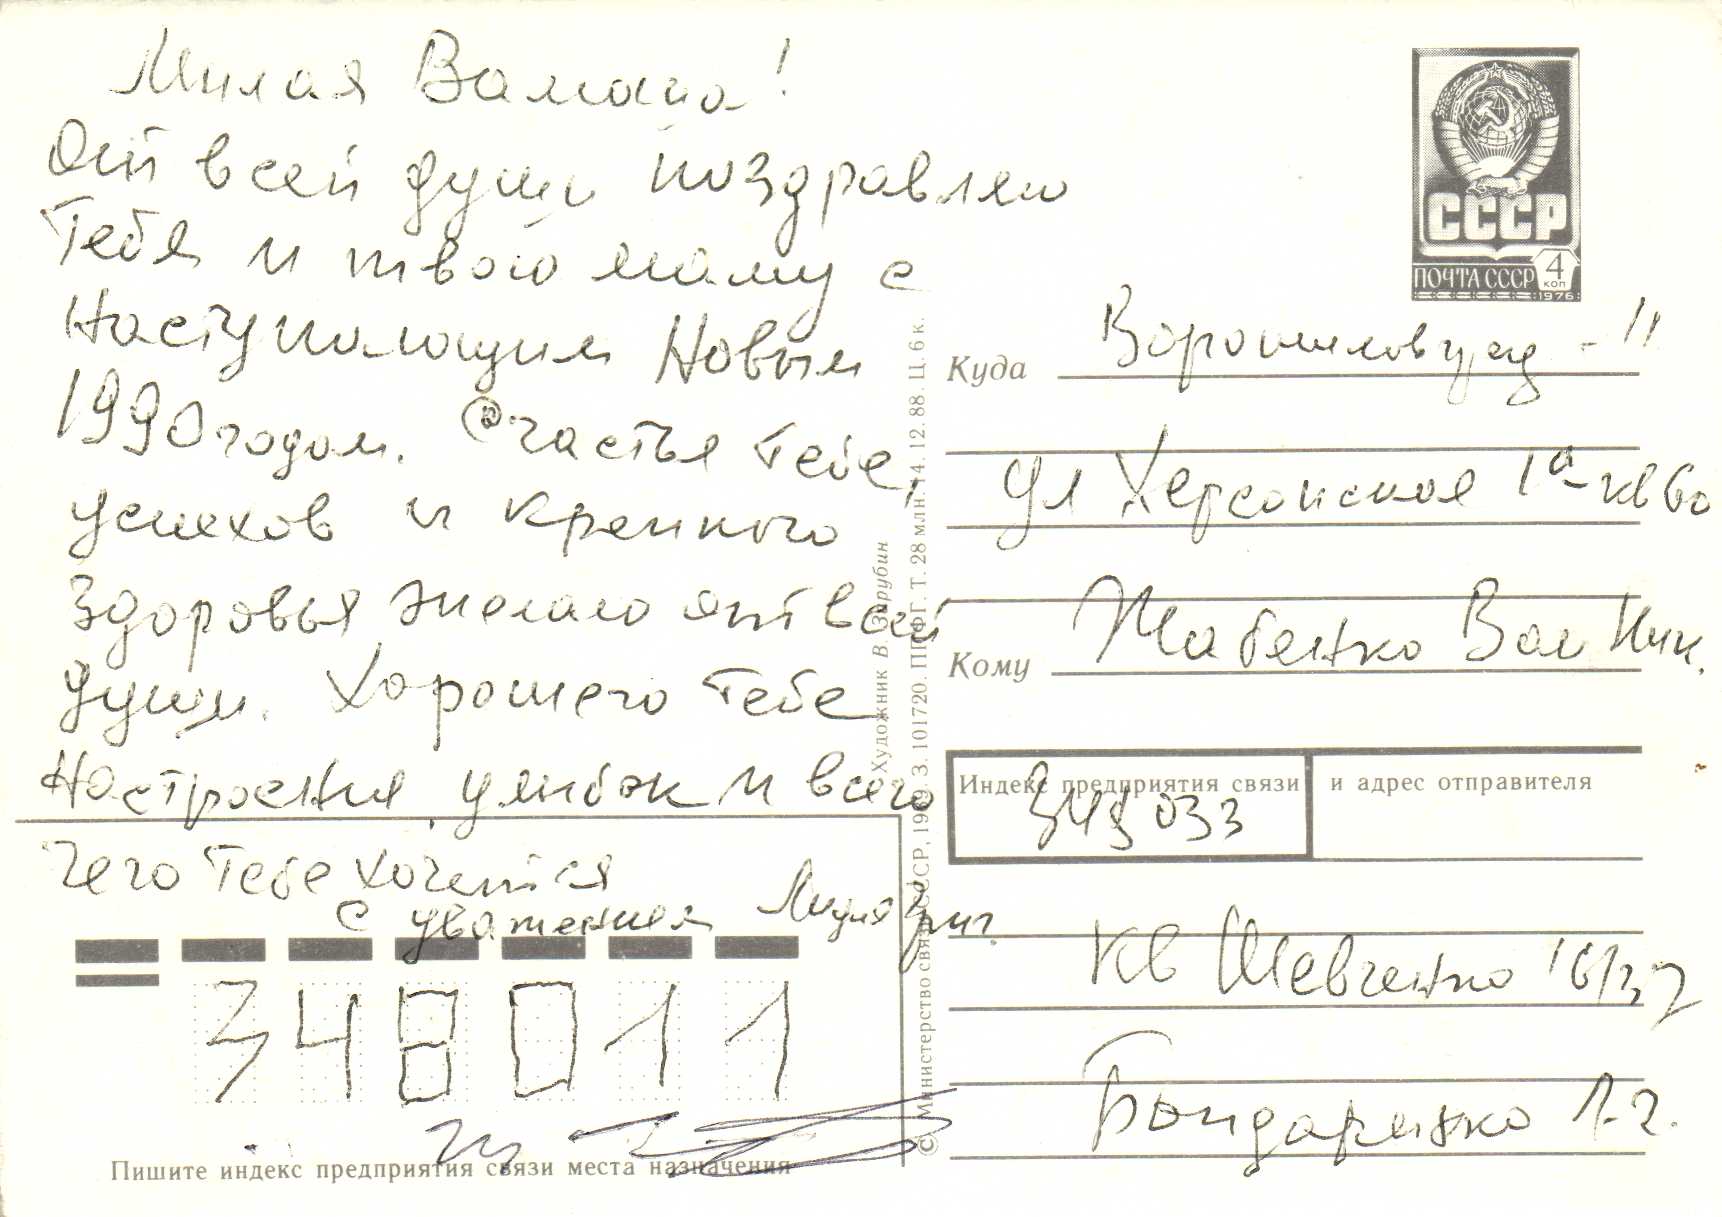 Милая Валюша!
От всей души поздравляю
Тебя и твою маму с
Наступающим Новым
1990 годом. Счастья Тебе,
успехов и крепкого
Здоровья желаю от всей
души. Хорошего Тебе
Настроения, улыбок и всего
чего Тебе хочется
С уважением Лидия Григ.
СССР
ПОЧТА СССР 4 коп
1976
Куда Ворошиловград - 11
ул Херсонская 1а - кв 60
Кому Жабенко Вал Ник.
Индекс предприятия связи и адрес отправителя
348033
кв Шевченко 16/32
Бондаренко Л.Г.
348011
Пишите индекс предприятия связи места назначения
Художник В. Зарубин
© Министерство связи СССР, 1989. З. 101720. ППФГ. Т. 28 млн. 14. 12. 88. Ц. 6 к.